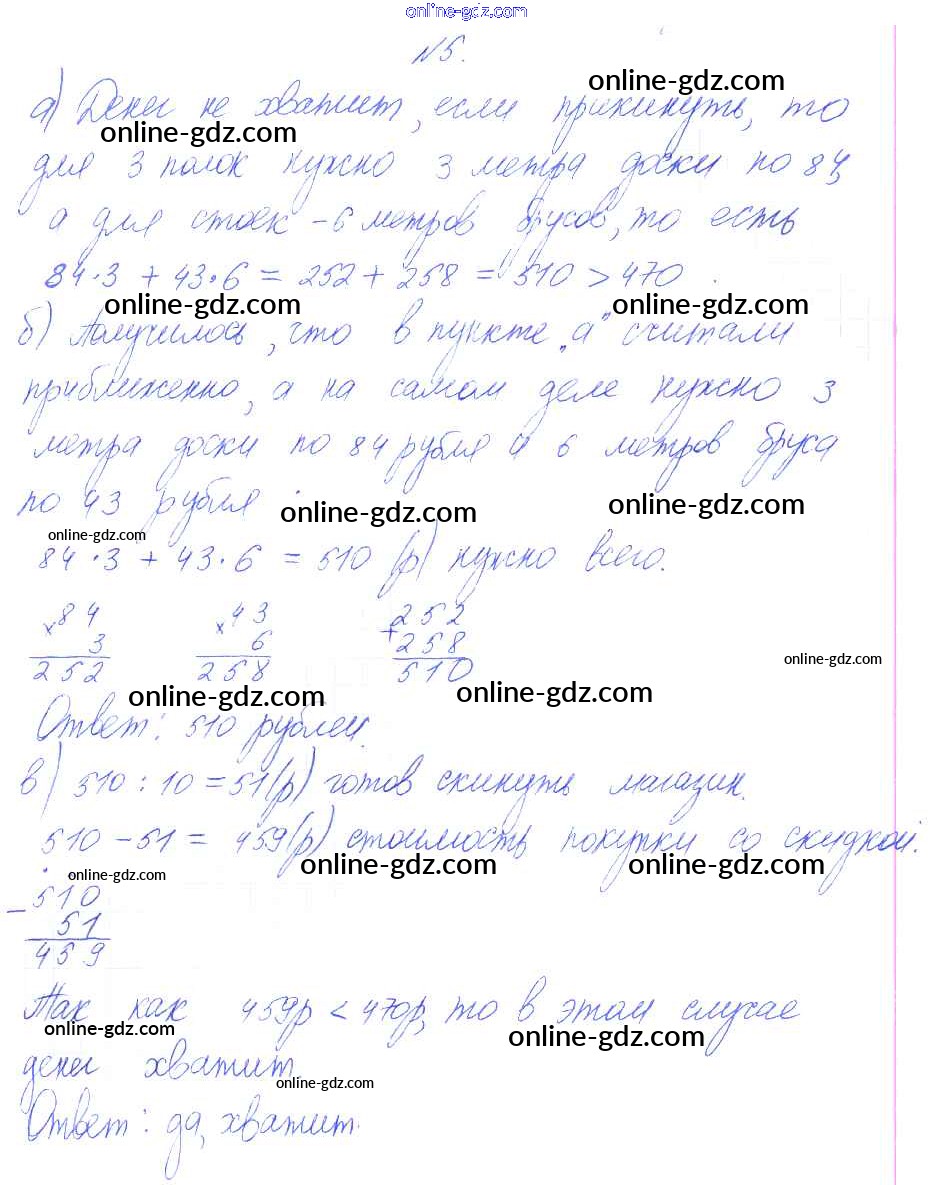 online-gdz.com
№5.
online-gdz.com
а) Денег не хватит, если прикинуть, то
online-gdz.com
для 3 полок нужно 3 метра доски по 84,
а для стоек – 6 метров брусов, то есть
84·3 + 43·6 = 252 + 258 = 510 > 470
online-gdz.com online-gdz.com
б) Получилось, что в пункте „а" считали
приближенно, а на самом деле нужно 3
метра доски по 84 рубля и 6 метров бруса
по 43 рубля
online-gdz.com online-gdz.com
online-gdz.com
84·3 + 43·6 = 510 (р) нужно всего.
×84 ×43 +252
3 6 258
252 258 510
online-gdz.com
online-gdz.com online-gdz.com
Ответ: 510 рублей.
в) 510 : 10 = 51(р) готов скинуть магазин.
510 – 51 = 459(р) стоимость покупки со скидкой.
online-gdz.com online-gdz.com
online-gdz.com
–510
51
459
Так как 459р < 470р, то в этом случае
online-gdz.com online-gdz.com
денег хватит
online-gdz.com
Ответ: да, хватит.